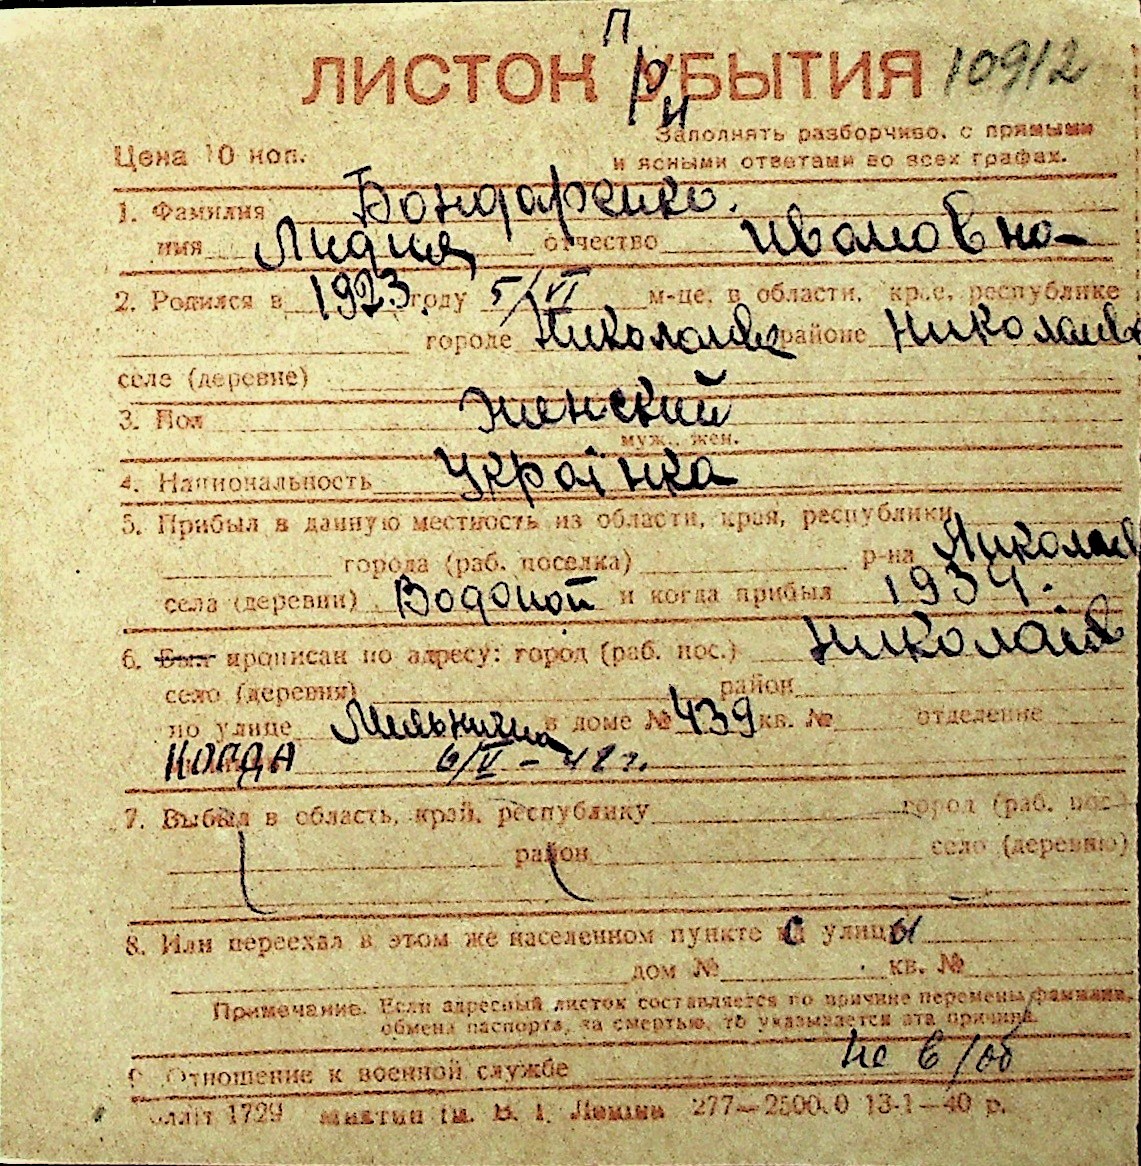 П
ЛИСТОК УБЫТИЯ 10912
ри
Заполнять разборчиво, с прямыми
Цена 10 коп. и ясными ответами во всех графах.
1. Фамилия Бондаренко.
имя Лидия отчество Ивановна
2. Родился в 1923 году 5/VI м-це, в области, крае, республике
городе Николаеве районе Николаев
селе (деревне)
3. Пол Женский
муж., жен.
4. Национальность Українка
5. Прибыл в данную местность из области, края, республики
города (раб. поселка) р-на Николаев
села (деревни) Водопой и когда прибыл 1934.
6. Был прописан по адресу: город (раб. пос.) Николаїв
село (деревня) район
по улице Мельнична в доме № 439 кв. № отделение
когда 6/V - 42 г.
7. Выбыл в область, край, республику город (раб. пос.)
район село (деревню)
8. Или переехал в этом же населенном пункте с улицы
дом № кв. №
Примечание. Если адресный листок составляется по причине перемены фамилии,
обмена паспорта, за смертью, то указывается эта причина.
9. Отношение к военной службе не в/об
1729 ім. В. І. Леніна 277—2500.0 13-1—40 р.